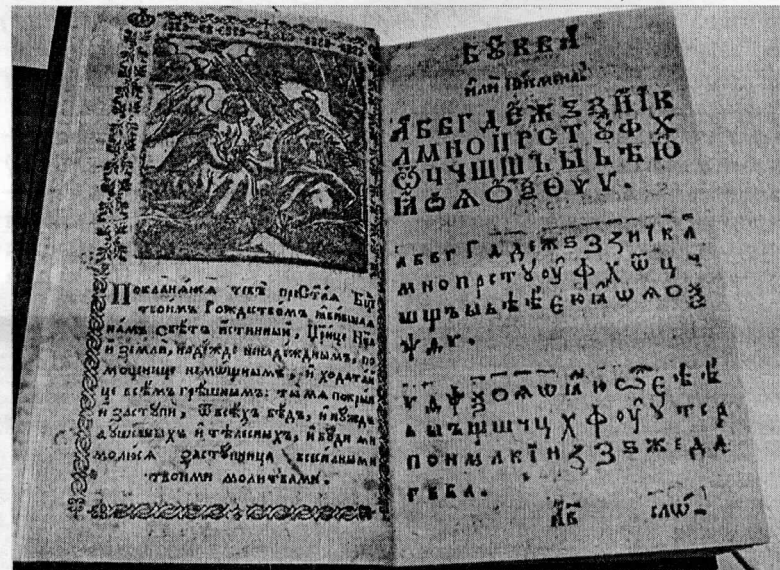 Поклана́юся тебѣ̀ прест҃а́я Бц҃е
твои́мъ Рождество́мъ ꙗ҆ви́вшая
на́мъ Свѣ́тъ и҆́стинный, Цр҃и́це Нб҃а
и҆ Землѝ, наде́жде ненаде́ждныхъ, по
мо́щнице немощны́мъ, и҆ хода́таи
це всѣ́мъ грѣ́шнымъ: ты̀ мѧ покры́й
и҆ застꙋпѝ, ѿ всѣ́хъ бѣ́дъ, и҆ нꙋ́ждъ
дꙋше́вныхъ и҆ тѣле́сныхъ, и҆ бꙋ́ди ми
молю́сѧ застꙋ́пница всеси́льными
твои́ми моли́твами.
БꙊКВЫ
и҆лѝ
А Б В Г Д Е Ж Ѕ З И І К
Л М Н О П Р С Т Ꙋ Ф Х
Ѿ Ц Ч Ш Щ Ъ Ы Ь Ѣ Ю
Ꙗ Ѡ Ѧ Ѯ Ѳ Ѵ Ѵ.
а б в г д е ж ѕ з и і к л
м н о п р с т ꙋ оу ф х ѿ ц ч
ш щ ъ ы ь ѣ є ю ꙗ ѡ ѧ о ѯ
ѱ ѳ ѵ.
ѵ ѳ ѱ ѯ о ѧ ѡ ꙗ ю є ѣ ь
ы ъ щ ш ч ц х ф оу ꙋ т с р
п о н м л к і и з ѕ ж е д
г в б а.
а҆́в сло-